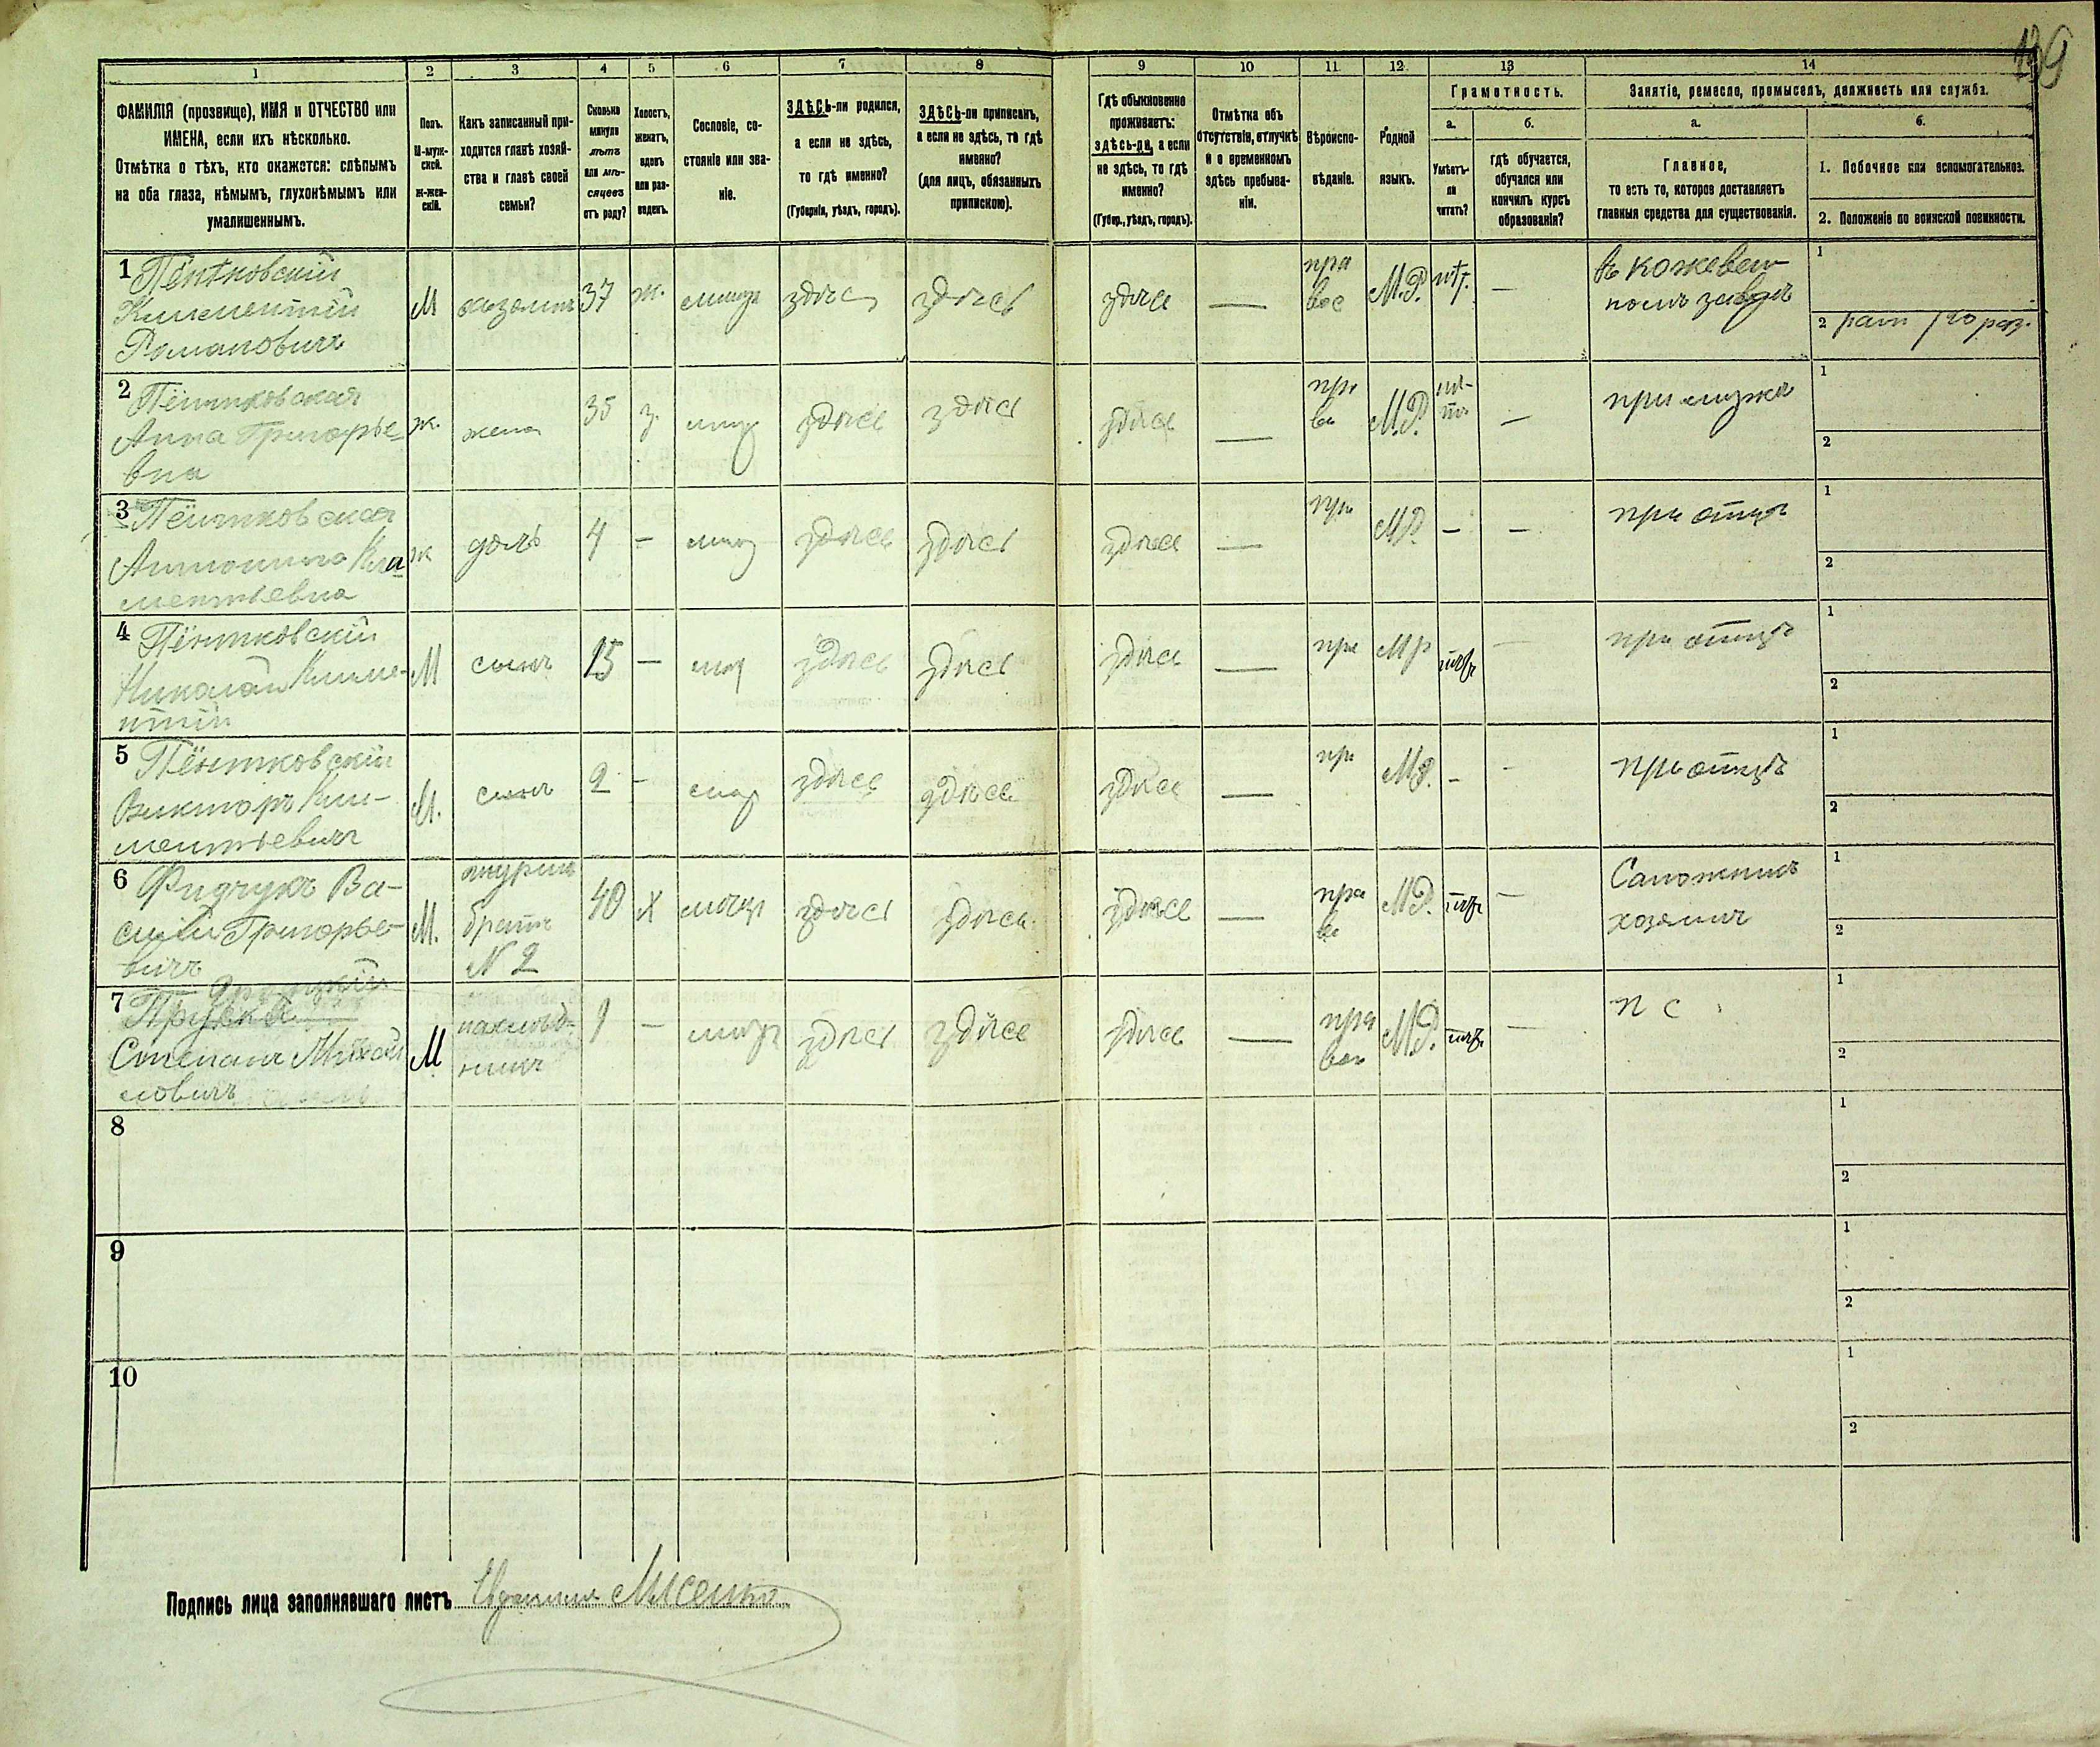 139
1 2 3 4 5 6 7 8 9 10 11 12 13 14
ФАМИЛІЯ (прозвище), ИМЯ и ОТЧЕСТВО или
ИМЕНА, если ихъ нѣсколько.
Отмѣтка о тѣхъ, кто окажется: слѣпымъ
на оба глаза, нѣмымъ, глухонѣмымъ или
умалишеннымъ.
Полъ.
М-муж-
ской.
Ж-жен-
скій.
Какъ записанный при-
ходится главѣ хозяй-
ства и главѣ своей
семьи?
Сколько
минуло
лѣтъ
или мѣ-
сяцевъ
отъ роду?
Холостъ,
женатъ,
вдовъ
или раз-
веденъ.
Сословіе, со-
стояніе или зва-
ніе.
ЗДѢСЬ-ли родился,
а если не здѣсь,
то гдѣ именно?
(Губернія, уѣздъ, городъ).
ЗДѢСЬ-ли приписанъ,
а если не здѣсь, то гдѣ
именно?
(для лицъ, обязанныхъ
припискою).
Гдѣ обыкновенно
проживаетъ:
здѣсь-ли, а если
не здѣсь, то гдѣ
именно?
(Губер., уѣздъ, городъ).
Отмѣтка объ
отсутствіи, отлучкѣ
и о временномъ
здѣсь пребыва-
ніи.
Вѣроиспо-
вѣданіе.
Родной
языкъ.
Грамотность.
а.
Умѣетъ-
ли
читать?
б.
гдѣ обучается,
обучался или
кончилъ курсъ
образованія?
Занятіе, ремесло, промыселъ, должность или служба.
а.
Главное,
то есть то, которое доставляетъ
главныя средства для существованія.
б.
1. Побочное или вспомогательное.
2. Положеніе по воинской повинности.
1 Пёнтковскій
Климентій
Романовичъ
М
хозяинъ
37
ж.
здѣсь
здѣсь
здѣсь
—
пра
вос
М.Р.
—
въ кожевен
номъ заводѣ
1
2
2 Пёнтковская
Анна Григорье-
вна
ж.
жена
35
з.
здѣсь
здѣсь
здѣсь
—
пра
во
М.Р.
—
при мужѣ
1
2
3 Пёнтковская
Антонина Кли
ментьевна
ж
дочь
4
—
здѣсь
здѣсь
здѣсь
—
пра
М.Р.
—
—
при отцѣ
1
2
4 Пёнтковскій
Николай Климе-
нтій
М
сынъ
15
—
здѣсь
здѣсь
здѣсь
—
пра
М Р
—
при отцѣ
1
2
5 Пёнтковскій
Викторъ Кли-
ментьевичъ
М.
сынъ
2
—
здѣсь
здѣсь
здѣсь
—
пра
М.Р.
-
-
при отцѣ
1
2
6 Фидчукъ Ва-
силій Григорье-
вичъ
М.
шуринъ
братъ
N 2
40
х
здѣсь
здѣсь
здѣсь
—
пра
во
М.Р.
—
Сапожникъ
хозяинъ
1
2
7
Степанъ Михай
ловичъ
М
9
—
здѣсь
здѣсь
здѣсь
—
пра
вос
М.Р.
—
п с
1
2
8
1
2
9
1
2
10
1
2
Подпись лица заполнявшаго листъ